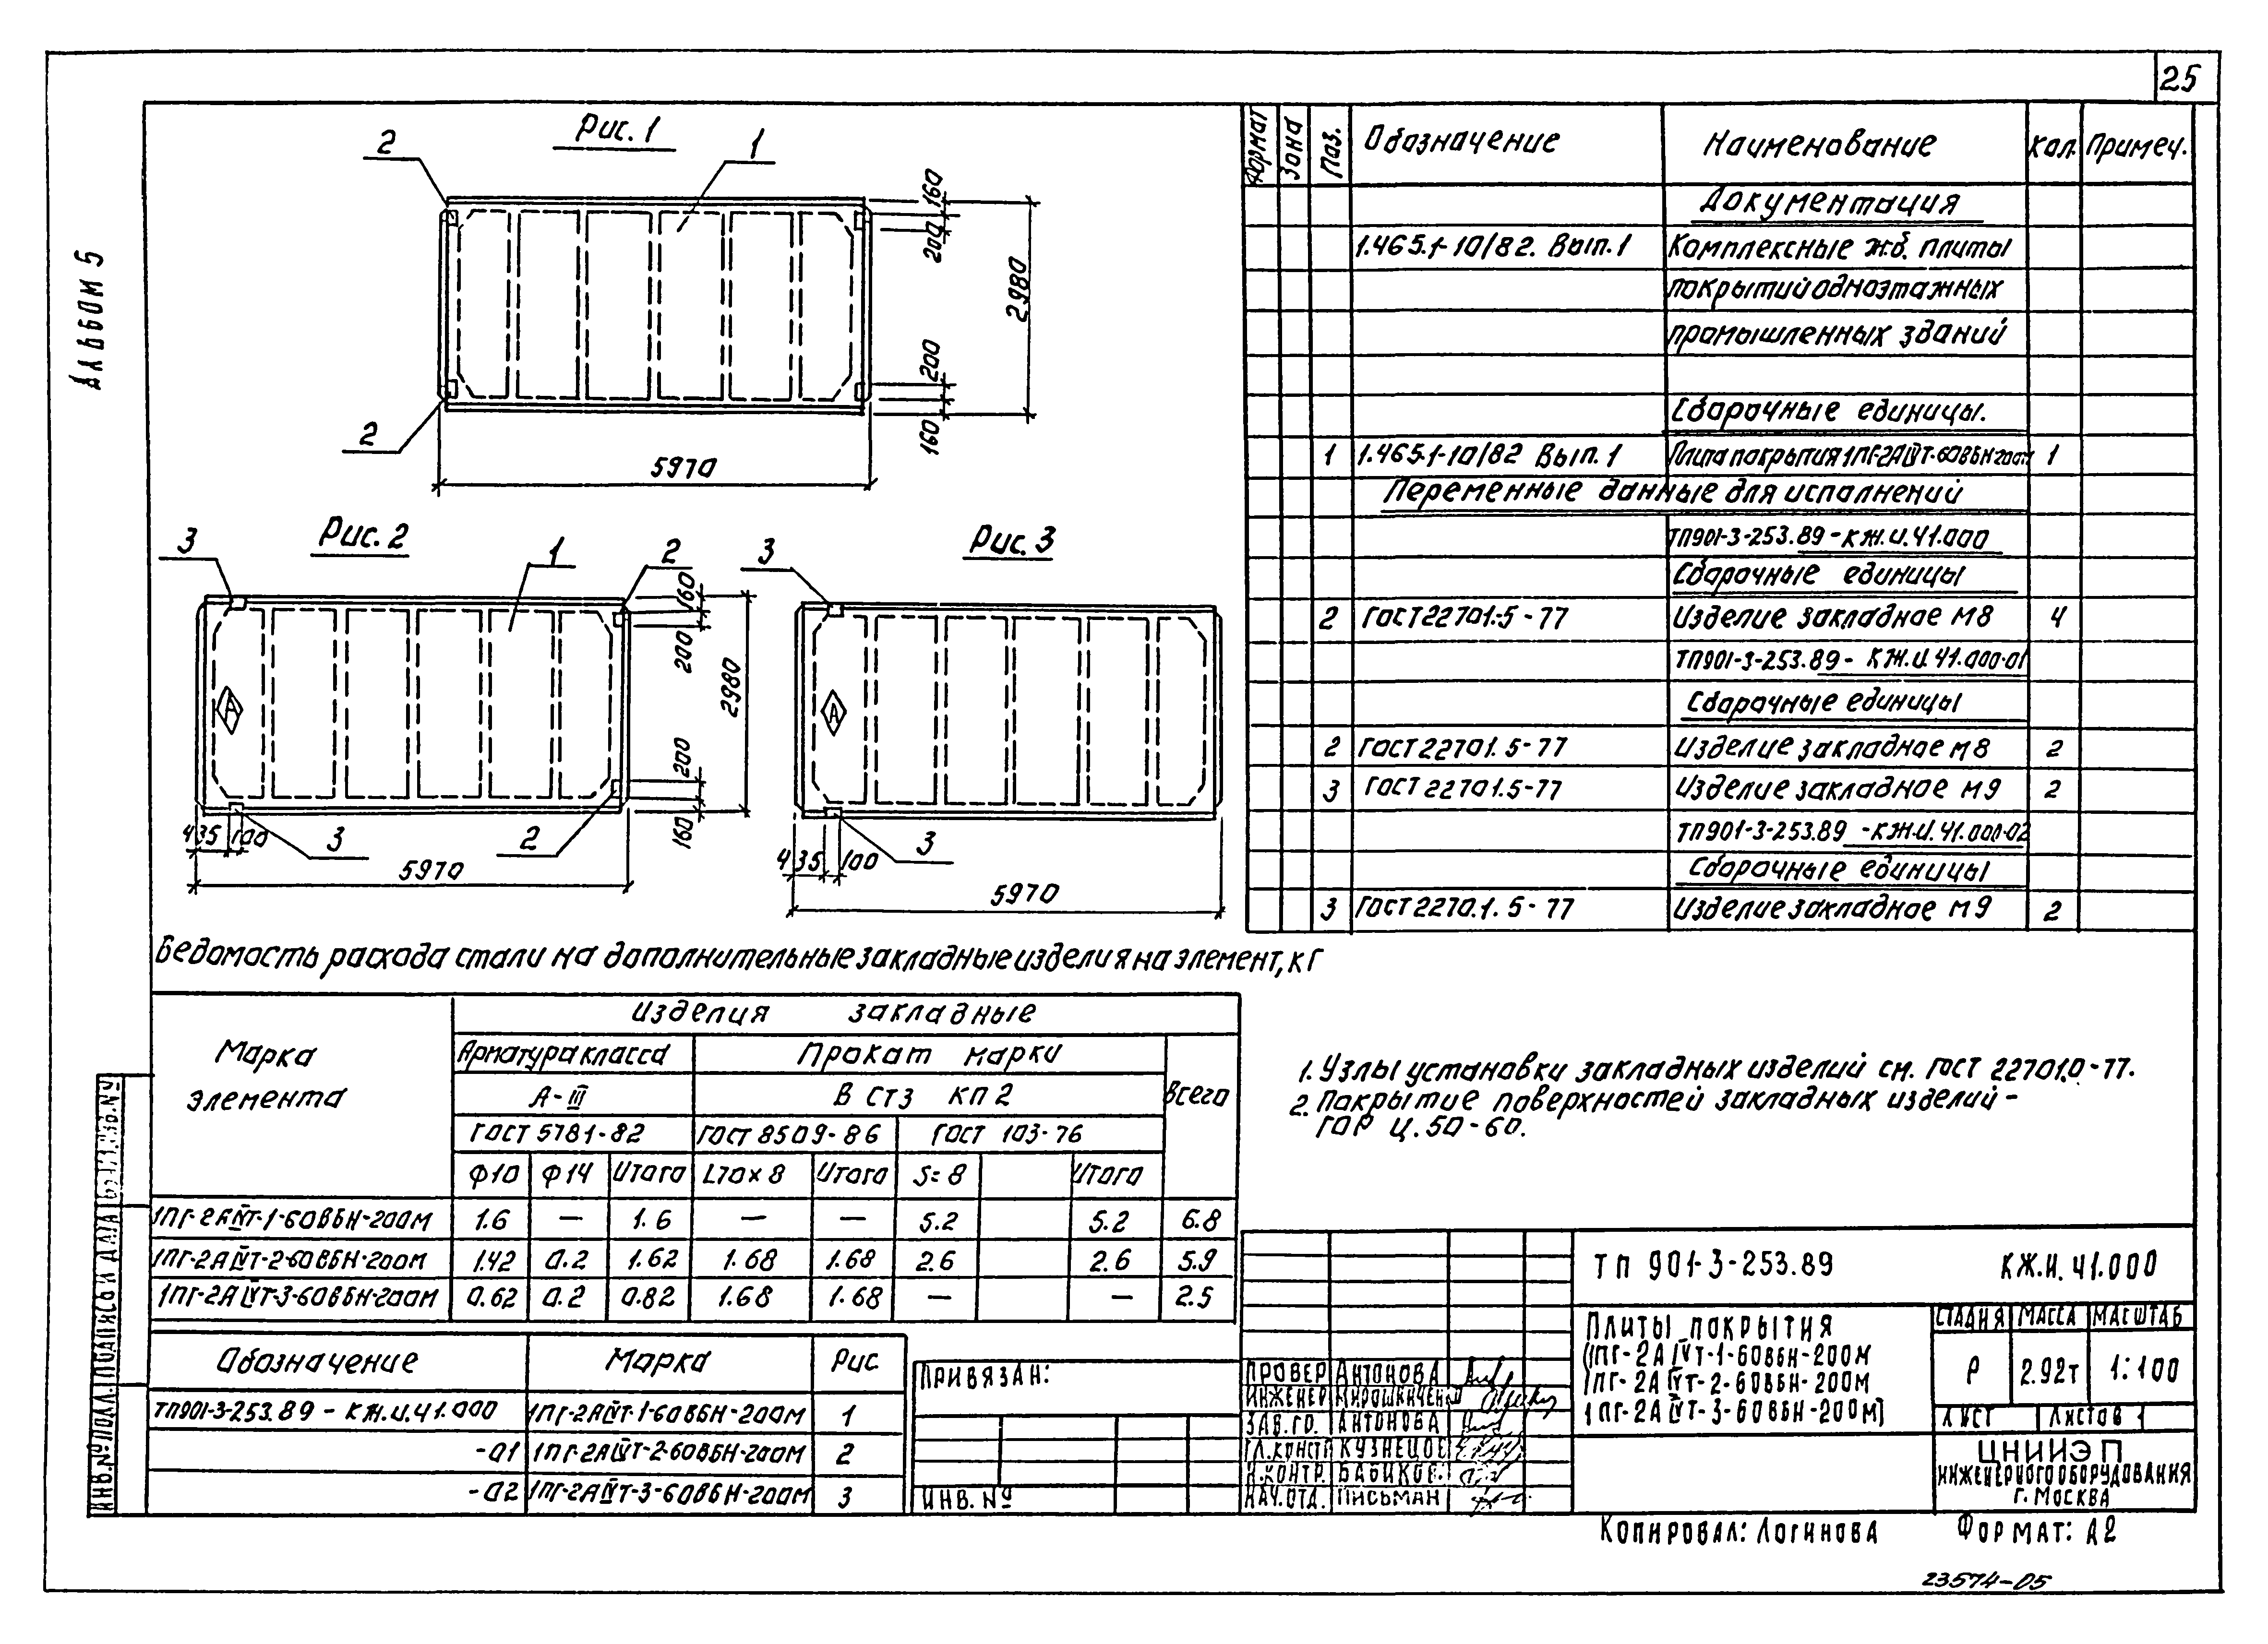 25
Альбом 5
Рис. 1
2
1
2
160
200
2980
200
160
5970
Рис. 2
3
1
2
160
200
2980
200
160
А
435
100
3
2
5970
Рис. 3
3
А
435
100
3
5970
Формат Зона Поз. Обозначение Наименование Кол. Примеч.
Документация
1.465.1-10/82. Вып. 1 Комплексные ж.б. плиты
покрытий одноэтажных
промышленных зданий
Сборочные единицы.
1 1.465.1-10/82 Вып. 1 Плита покрытия 1ПГ-2АIVТ-60ВБН-200м 1
Переменные данные для исполнений
ТП901-3-253.89-КЖ.И.41.000
Сборочные единицы
2 ГОСТ 22701.5-77 Изделие закладное М8 4
ТП901-3-253.89-КЖ.И.41.000-01
Сборочные единицы
2 ГОСТ 22701.5-77 Изделие закладное М8 2
3 ГОСТ 22701.5-77 Изделие закладное М9 2
ТП901-3-253.89-КЖ.И.41.000-02
Сборочные единицы
3 ГОСТ 2270.1.5-77 Изделие закладное М9 2
Ведомость расхода стали на дополнительные закладные изделия на элемент, кг
Марка элемента
Изделия закладные
Арматура класса Прокат марки
А-III В Ст3 кп 2 Всего
ГОСТ 5781-82 ГОСТ 8509-86 ГОСТ 103-76
Ф10 Ф14 Итого L70х8 Итого S=8 Итого
1ПГ-2АIVТ-1-60ВБН-200М 1.6 — 1.6 — — 5.2 5.2 6.8
1ПГ-2АIVТ-2-60ВБН-200М 1.42 0.2 1.62 1.68 1.68 2.6 2.6 5.9
1ПГ-2АIVТ-3-60ВБН-200М 0.62 0.2 0.82 1.68 1.68 — — 2.5
1. Узлы установки закладных изделий см. ГОСТ 22701.0-77.
2. Покрытие поверхностей закладных изделий -
ГОР Ц. 50-60.
Обозначение Марка Рис
ТП901-3-253.89-КЖ.И.41.000 1ПГ-2АIVТ-1-60ВБН-200М 1
-01 1ПГ-2АIVТ-2-60ВБН-200М 2
-02 1ПГ-2АIVТ-3-60ВБН-200М 3
Привязан:
Инв. №
Провер Антонова
Инженер Мирошниченко
Зав.гр. Антонова
Гл.констр Кузнецов
Н.контр. Бабиков
Нач.отд. Письман
ТП 901-3-253.89 КЖ.И.41.000
Плиты покрытия
(1ПГ-2АIVТ-1-60ВБН-200М
1ПГ-2АIVТ-2-60ВБН-200М
1ПГ-2АIVТ-3-60ВБН-200М)
Стадия Масса Масштаб
Р 2.92т 1:100
Лист Листов 1
ЦНИИЭП
инженерного оборудования
г. Москва
Инв.№подл. Подпись и дата
Копировал: Логинова Формат: А2
23574-05